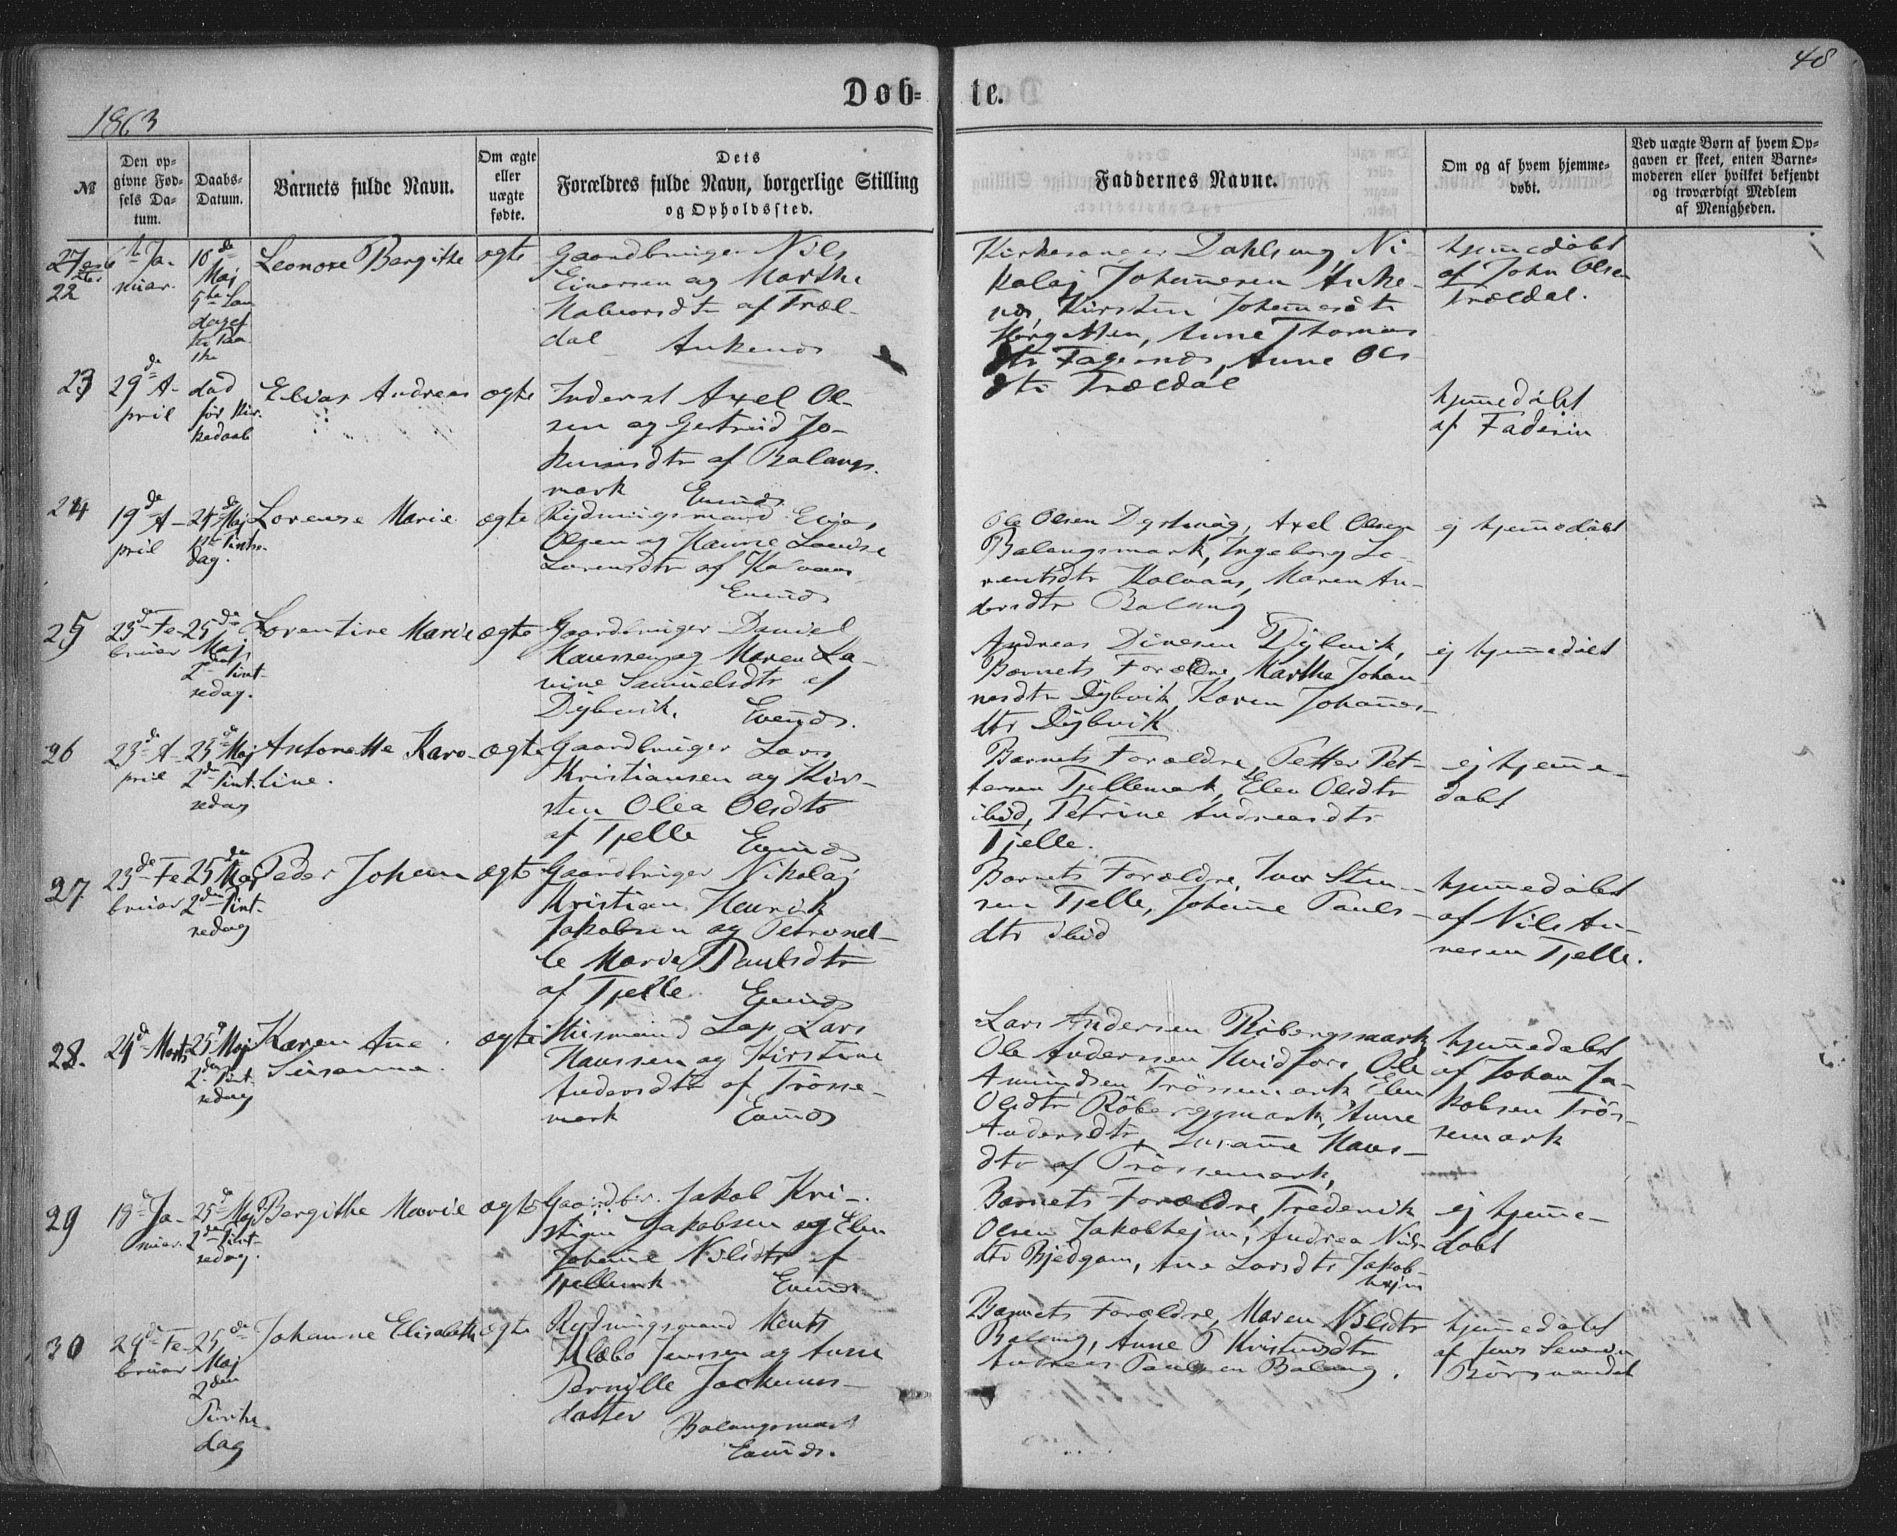 48
Døb-
te.
1863
№
Den op-
givne Fød-
sels Da-
tum.
Daabs-
Datum.
Barnets fulde Navn.
Om ægte
eller
uægte
fødte.
Dets
Forældres fulde Navn, borgerlige Stilling
og Opholdssted.
Faddernes Navne.
Om og af hvem hjemme-
døbt.
Ved uægte Børn af hvem Op-
gaven er skeet, enten Barne-
moderen eller hvilket bekjendt
og troværdigt Medlem
af Menigheden.
22
Ja-
nuar.
10de
Maj
Leonore Bergithe
ægte
Gaardbruger Nils
Einersen og Marthe
af Træl-
dal Ankenes
Kirkesanger Dahlseng, Ni-
kolaj Johannesen Anke-
nes, Kirsten Johannesdtr
Anne Thomas
dtr Fagernes, Anne Ols
dtr Trældal
hjemmedøbt
af John Olsen
Trældal.
23
29de A-
pril
død
før Kir-
kedaab
Elias Andreas
ægte
Inderst Axel Ol-
sen og Gertrud Jo-
af Balangs
mark Evenes
hjemmedøbt
af Faderen
24
19de A-
pril
24de Maj
1ste Pintse
dag.
Lorense Marie
ægte
Rydningsmand
Olsen og Hanne Lovise
Lorensdtr af
Evenes
Ole Olsen Dystvåg, Axel Olsen
Balangsmark, Ingeborg Lo-
rentsdtr Maren An-
dersdtr Balang
ej hjemmedøbt
25
23de Fe-
bruar
25de
Maj
2den Pint-
sedag.
Lorentine Marie
ægte
Gaardbruger Daniel
Hanssen og Maren La-
vine Samuelsdtr af
Dybvik. Evenes.
Andreas Dinesen Dybvik,
Barnets Forældre, Marthe Johan-
nesdtr Dybvik, Karen Johannes-
dtr Dybvik
ej hjemmedøbt
26
23de A-
pril
25de Maj
2den Pint-
sedag
Antonette Karo-
line.
ægte
Gaardbruger Lars
Kristiansen og Kir-
sten Olea Olsdtr
af Tjelle Evenes
Barnets Forældre, Petter Pet-
tersen Tjellemark, Elen Olsdtr
ibid, Petrine Andreasdtr
Tjelle.
ej hjemme-
døbt
27.
23de Fe-
bruar
25de Maj
2den Pint-
sedag
Peder Johan
ægte
Gaardbruger Nikolaj
Kristian Henrik
Jakobsen og Petronel-
le Marie Paulsdtr
af Tjelle Evenes
Barnets Forældre, Iver Sten-
sen Tjelle, Johanne Pauls-
dtr ibid
hjemmedøbt
af Nils An-
nesen Tjelle.
28.
24de Marts
25de Maj
2den Pint-
sedag
Karen Ane
Susanna.
ægte
Husmand Lap Lars
Hanssen og Kirstine
Andersdtr af Trösse-
mark Evenes
Lars Andersen Röbergsmark,
Ole Anderssen Hvidfors, Ole
Amundsen Trössemark, Elen
Olsdtr Röbergsmark, Anne
Andersdtr, Susanne Hans-
dtr af Trössemark,
hjemmedøbt
af Johan Ja-
kobsen Trös-
semark
29
18de Ja-
nuar.
25de Maj
2den Pint-
sedag.
Bergithe Marie
ægte
Gaardbr. Jakob Kri-
stian Jakobsen og Elen
Johanne Nilsdtr af
Tjellemk Evenes
Barnets Forældre, Frederik
Olsen Jakobhejm, Andrea Nils-
dtr Bjedgam, Ane Larsdtr Jakob-
hejm
ej hjemme-
døbt
30
24de Fe-
bruar
25de
Maj
2den
Pintse
dag
Johanne Elisabeth
ægte
Rydningsmand Ments
Klæbo Jenssen og Anne
Pernille Joakims-
datter Balangsmark
Evenes.
Barnets Forældre, Maren Nilsdtr
Balang, Anne P Kristensdtr
Andreas Paulsen Balang.
hjemmedøbt
af Jens Severin
Börsvandet